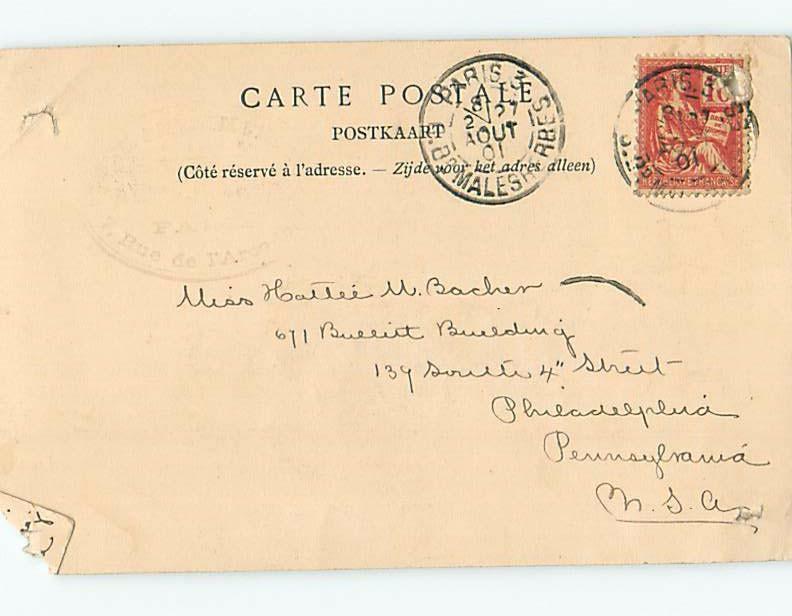 CARTE POSTALE
POSTKAART
(Côté réservé à l'adresse. — Zijde voor het adres alleen)
PARIS. 3
AOUT
01
Bd MALESHERBES
PARIS. 3
01
10
Rue de l'A
Miss Hattie M. Bacher
671 Bullitt Building
139 South 4" Street
Philadelphia
Pennsylvania
U. S. A